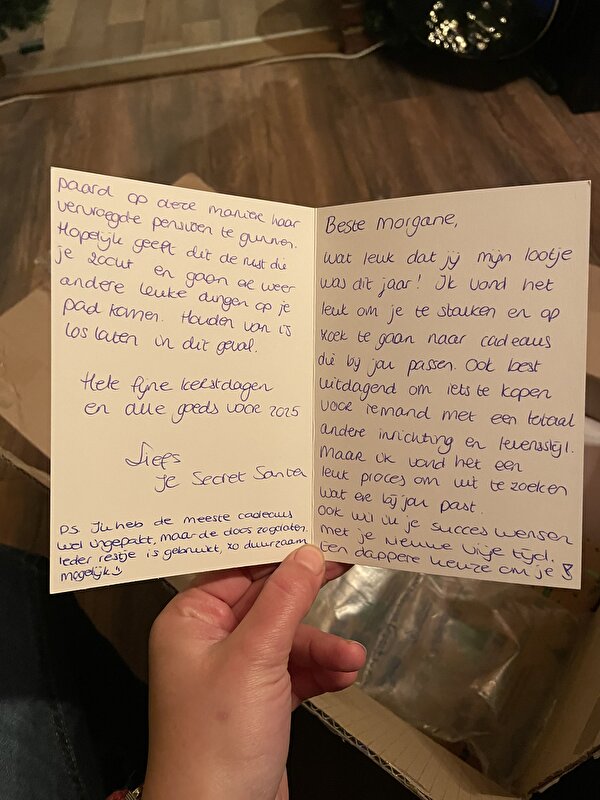 Beste Morgane,
Wat leuk dat jij mijn lootje
was dit jaar! Ik vond het
leuk om je te stalken en op
zoek te gaan naar cadeaus
die bij jou passen. Ook best
uitdagend om iets te kopen
voor iemand met een totaal
andere inrichting en levensstijl.
Maar ik vond het een
leuk proces om uit te zoeken
wat er bij jou past.
Ook wil ik je succes wensen
met je nieuwe vrije tijd.
Een dappere keuze om je
paard op deze manier haar
vervroegde pensioen te gunnen.
Hopelijk geeft dit de rust die
je zocht en gaan er weer
andere leuke dingen op je
pad komen. Houden van is
los laten in dit geval.
Hele fijne kerstdagen
en alle goeds voor 2025
Liefs
je Secret Santa
PS Ik heb de meeste cadeaus
wel ingepakt, maar de doos zo gelaten.
Ieder restje is gebruikt, zo duurzaam
mogelijk :)